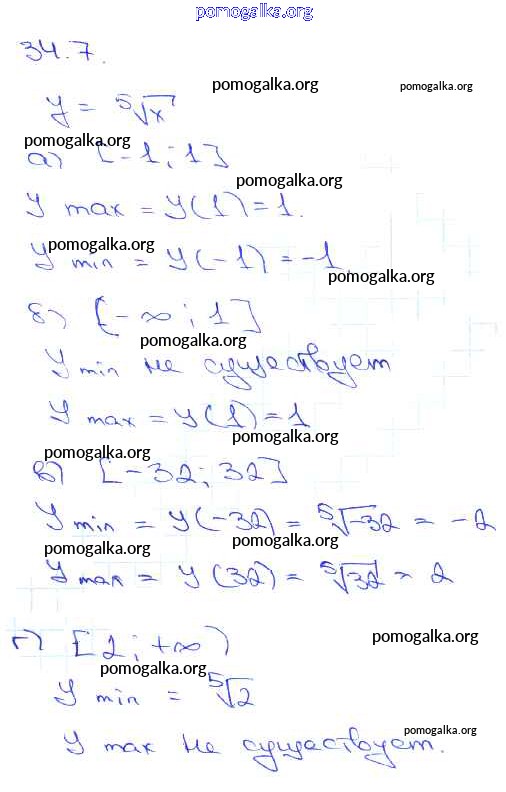 pomogalka.org
34.7.
pomogalka.org pomogalka.org
y = ⁵√x
pomogalka.org
а) [-1; 1]
pomogalka.org
y max = y(1) = 1.
pomogalka.org
y min = y(-1) = -1
pomogalka.org
б) [-∞; 1]
pomogalka.org
y min не существует
y max = y(1) = 1
pomogalka.org
pomogalka.org
в) [-32; 32]
y min = y(-32) = ⁵√-32 = -2
pomogalka.org pomogalka.org
y max = y(32) = ⁵√32 = 2
pomogalka.org
г) [2; +∞)
pomogalka.org
y min = ⁵√2
pomogalka.org
y max не существует.